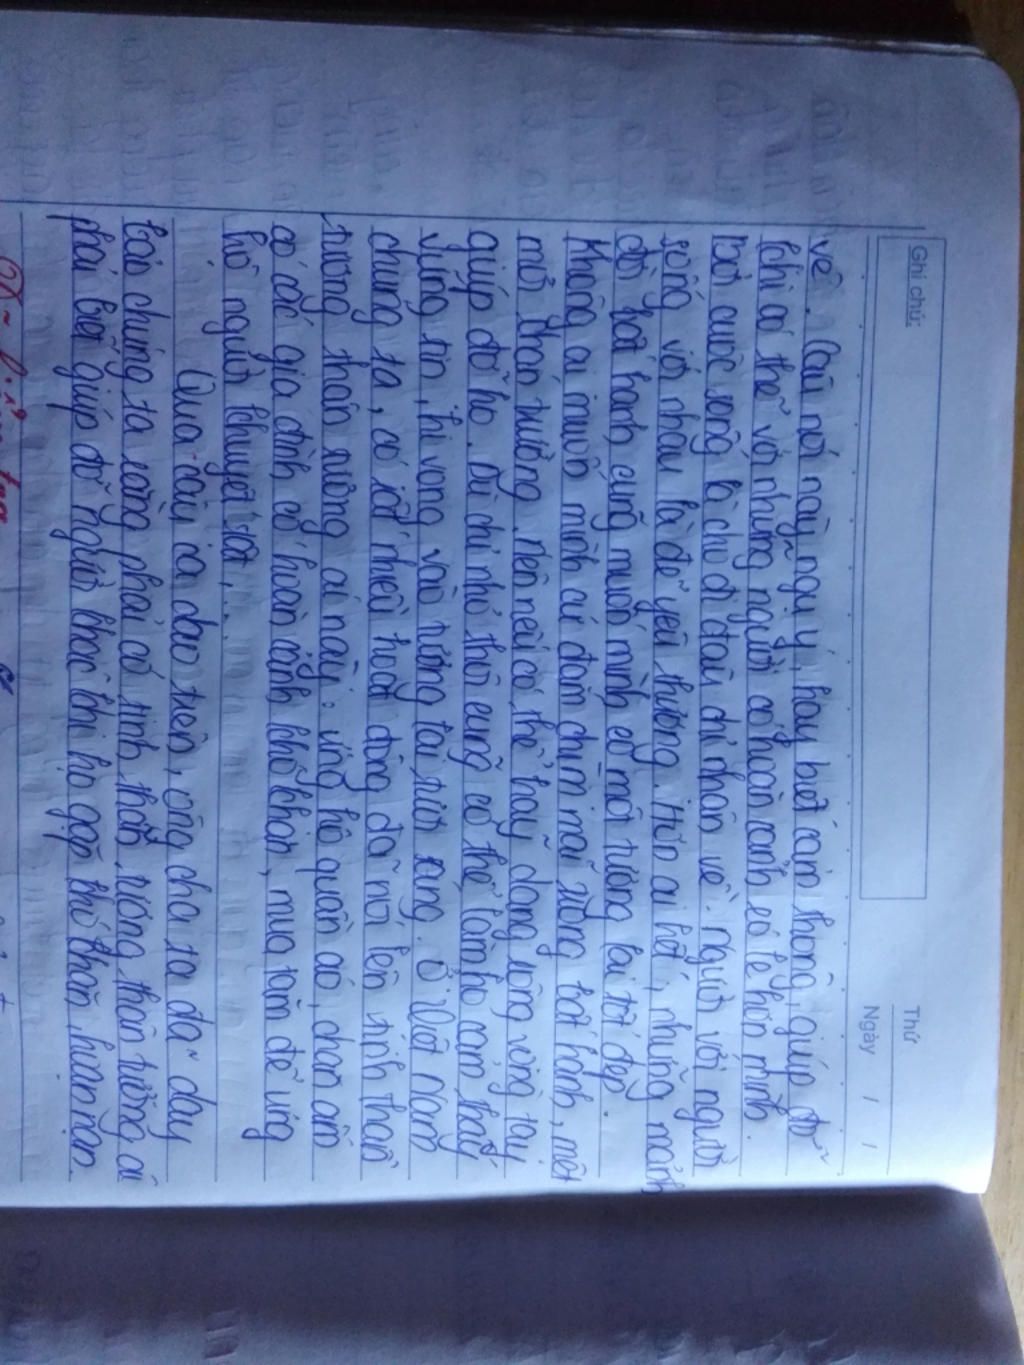 Ghi chú:
Thứ
Ngày / /
về. Câu nói này ngụ ý, hãy biết cảm thông, giúp đỡ
khi có thể với những người có hoàn cảnh éo le hơn mình.
Bởi cuộc sống là cho đi đâu chỉ nhận về. Người với người
sống với nhau là để yêu thương. Hơn ai hết, những mảnh
đời bất hạnh cũng muốn mình có một tương lai tốt đẹp.
Không ai muốn mình cứ đắm chìm mãi trong bất hạnh, một
mỏi, chán trường. Nên nếu có thể hãy dang rộng vòng tay
giúp đỡ họ. Dù chỉ nhỏ thôi cũng có thể làm họ cảm thấy
vững tin, hi vọng vào tương lai tươi sáng. Ở Việt Nam
chúng ta, có rất nhiều hoạt động đã nói lên tinh thần
tương thân tương ái này: ủng hộ quần áo, chăn ấm
có các gia đình có hoàn cảnh khó khăn, mua tăm để ủng
hộ người khuyết tật,...
Qua câu ca dao trên, ông cha ta đã dạy
bảo chúng ta rằng phải có tinh thần tương thân tương ái
phải biết giúp đỡ người khác khi họ gặp khó khăn, hoạn nạn.